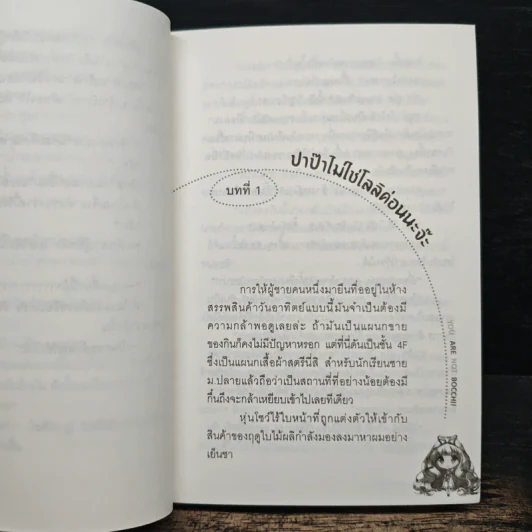 ปาป๊าไม่ใช่โลลิค่อนนะจ๊ะ
บทที่ 1
การให้ผู้ชายคนหนึ่งมายืนทื่ออยู่ในห้าง
สรรพสินค้าวันอาทิตย์แบบนี้มันจำเป็นต้องมี
ความกล้าพอดูเลยล่ะ ถ้ามันเป็นแผนกขาย
ของกินก็คงไม่มีปัญหาหรอก แต่ที่นี่ดันเป็นชั้น 4F
ซึ่งเป็นแผนกเสื้อผ้าสตรีนี่สิ สำหรับนักเรียนชาย
ม.ปลายแล้วถือว่าเป็นสถานที่ที่อย่างน้อยต้องมี
กึ๋นถึงจะกล้าเหยียบเข้าไปเลยทีเดียว
หุ่นโชว์ไร้ใบหน้าที่ถูกแต่งตัวให้เข้ากับ
สินค้าของฤดูใบไม้ผลิกำลังมองลงมาหาผมอย่าง
เย็นชา
YOU ARE NOT BOCCHI!